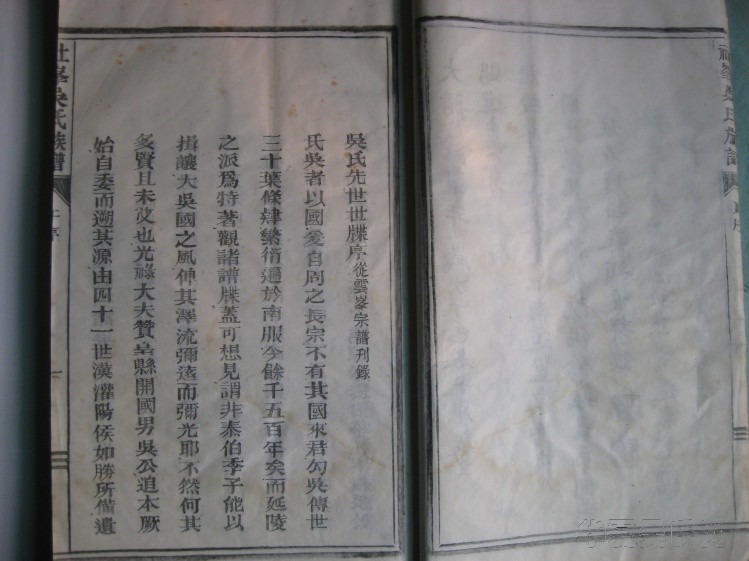 吳氏先世世牒序從雲峯宗譜刊錄
氏吳者以國爰自周之長宗不有其國來君勾吳傳世
三十葉條肄蘩衍遍於南服今餘千五百年矣而延陵
之派爲特著觀諸譜牒蓋可想見謂非泰伯季子能以
揖讓大吳國之風伸其澤流彌遠而彌光耶不然何其
多賢且未艾也光祿大夫贊皇縣開國男吳公追本厥
始自委而遡其源由四十一世漢灌陽侯如勝所備遺
社峯吳氏族譜